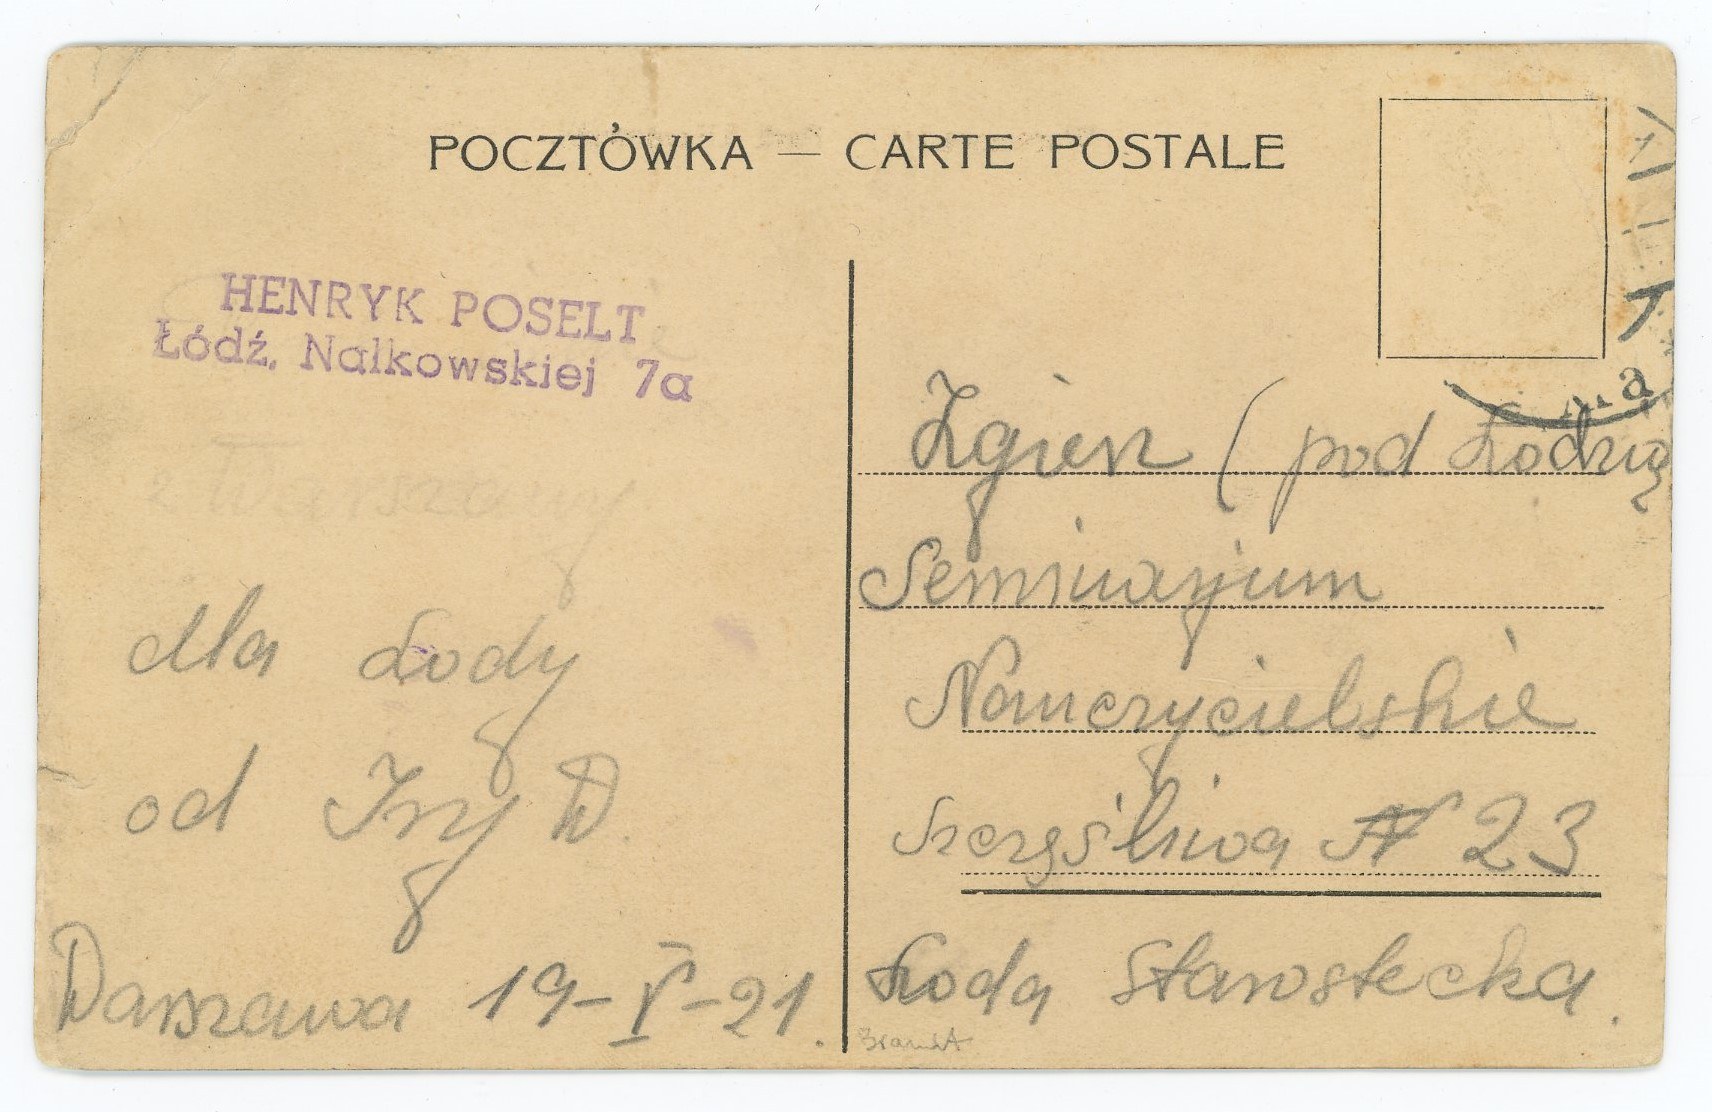 POCZTÓWKA — CARTE POSTALE
HENRYK POSELT
Łódź, Nałkowskiej 7a
z Warszawy
dla Lody
od Izy W.
Warszawa 19-V-21.
Zgierz (pod Łodzią
Seminarjum
Nauczycielskie
Szczęśliwa N 23
Loda Starostecka.
Brandt